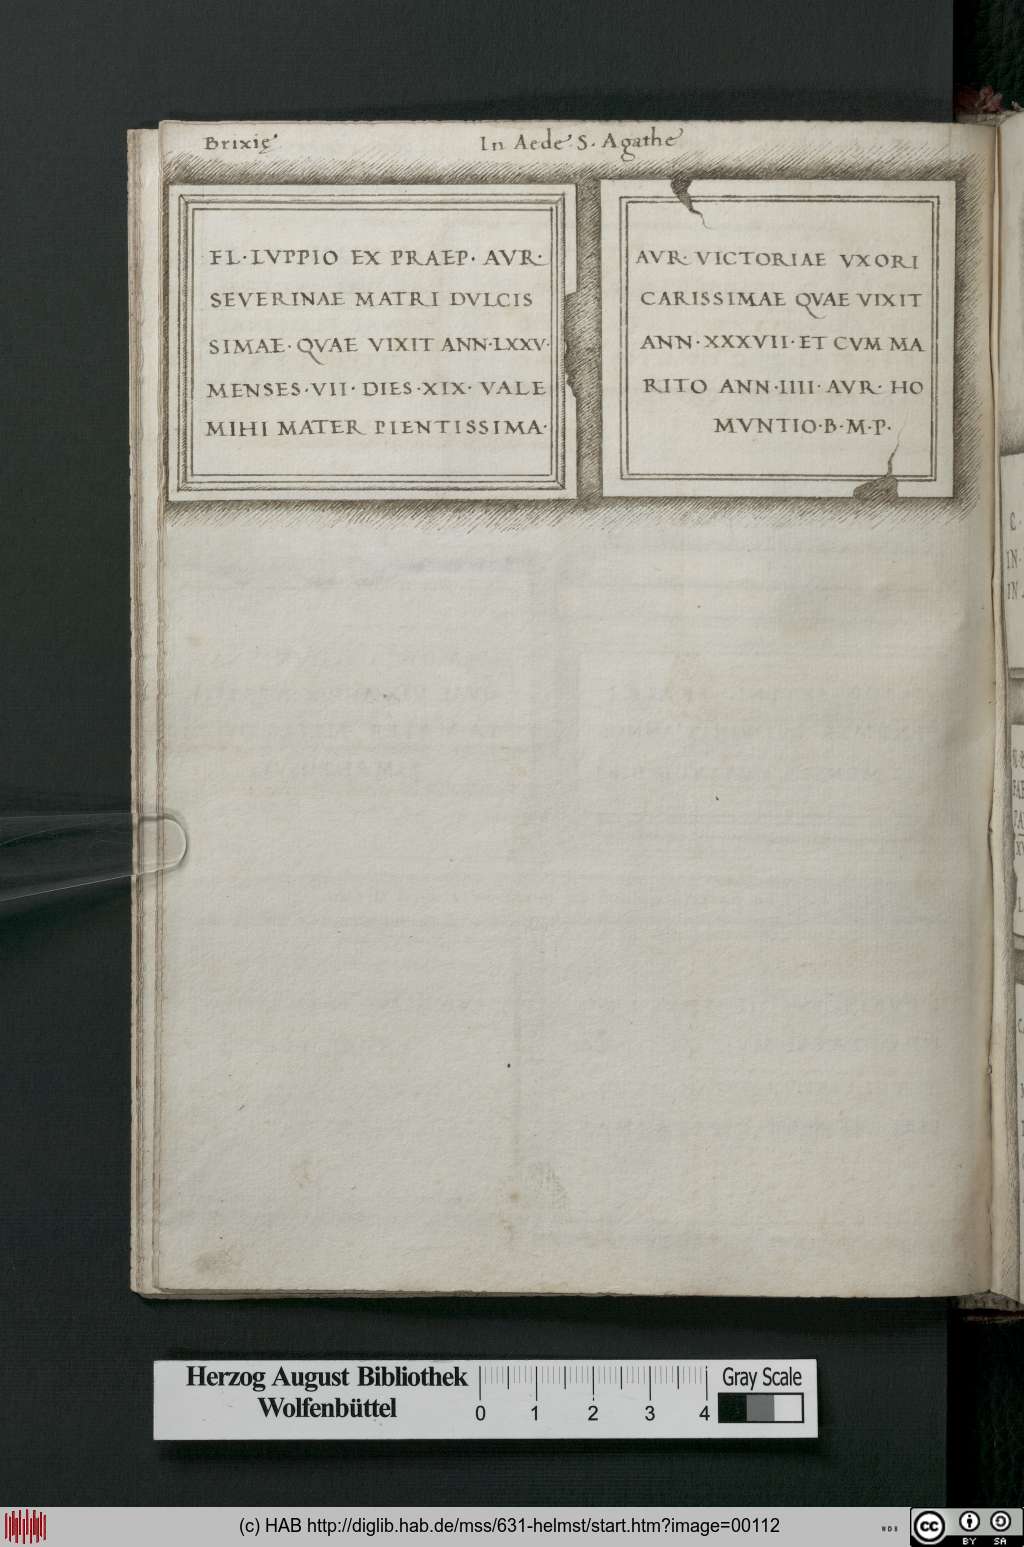 Brixię
In Aede S. Agathe
FL·LVPPIO EX PRAEP· AVR·
SEVERINAE MATRI DVLCIS
SIMAE· QVAE VIXIT ANN·LXXV·
MENSES·VII· DIES·XIX· VALE
MIHI MATER PIENTISSIMA·
AVR· VICTORIAE VXORI
CARISSIMAE QVAE VIXIT
ANN·XXXVII·ET CVM MA
RITO ANN·IIII· AVR· HO
MVNTIO·B·M·P·
Herzog August Bibliothek
Wolfenbüttel
0 1 2 3 4
Gray Scale
(c) HAB http://diglib.hab.de/mss/631-helmst/start.htm?image=00112
WDB
cc BY SA